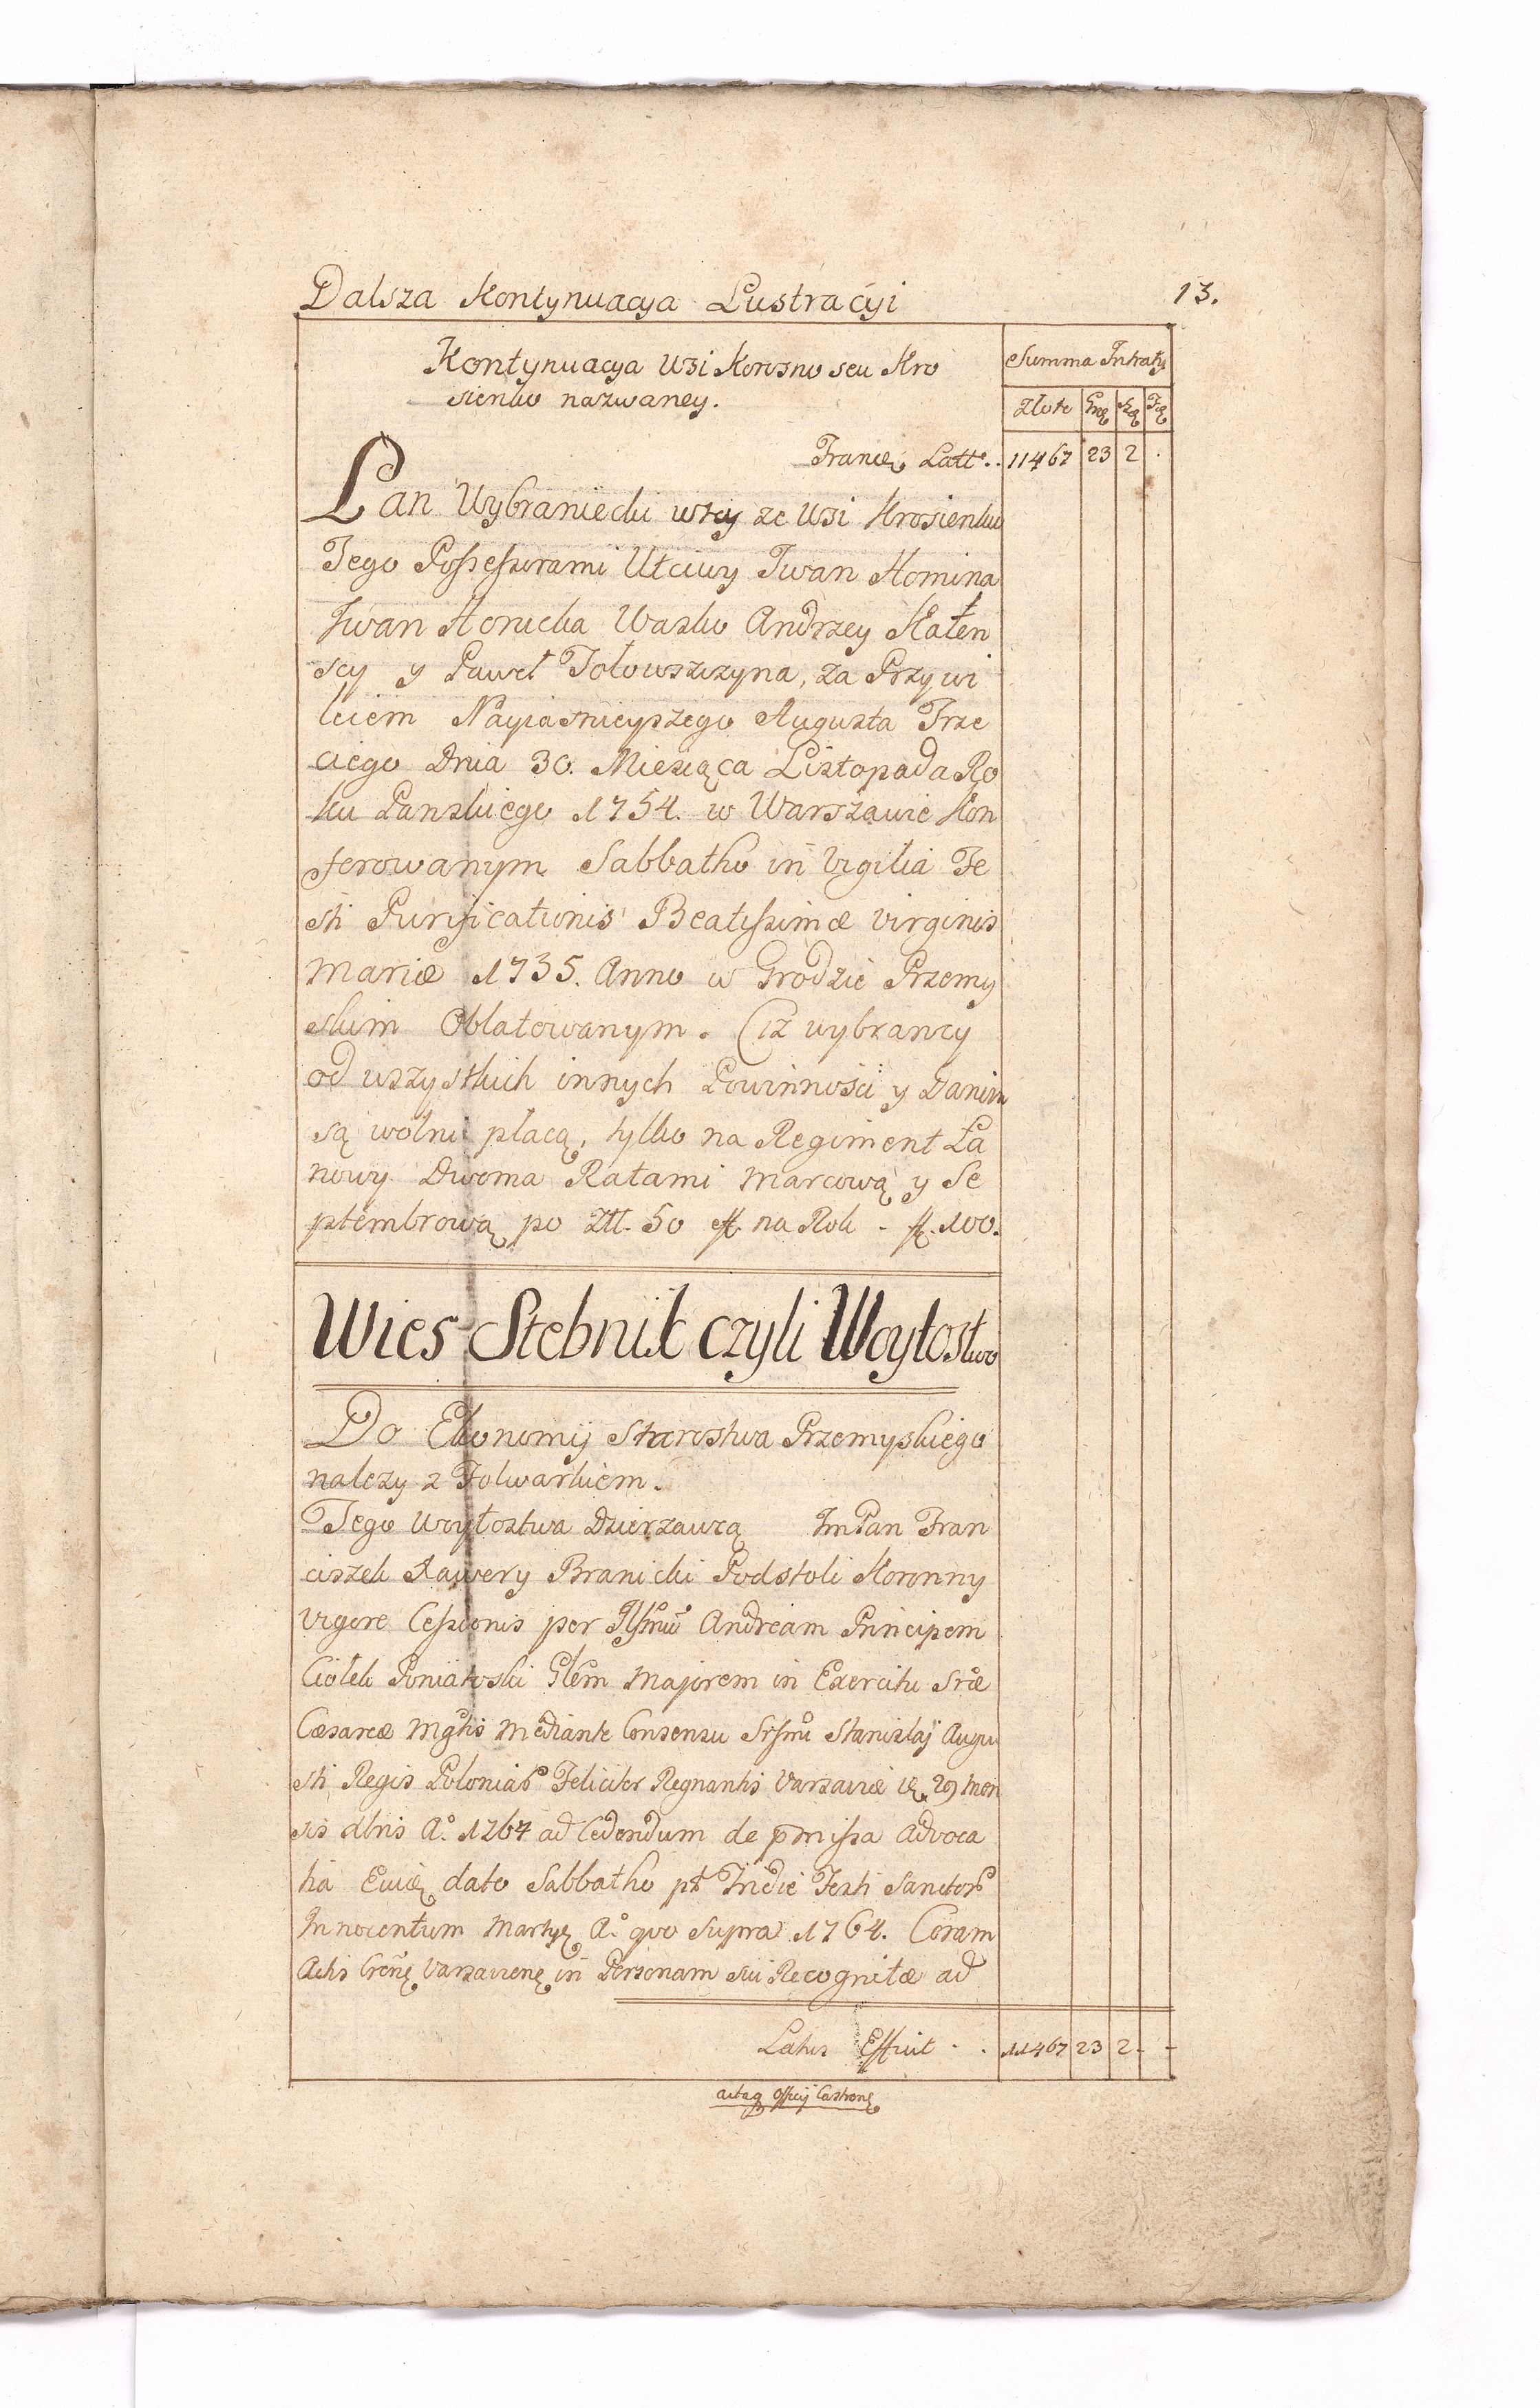 Dalsza Kontynuacya Lustracyi 13.
Kontynuacya Wsi Korosno seu Kro
sienko nazwaney.
Summa Intraty
Złote
Latt. . 11467 23 2 .
Łan Wybraniecki w tey ze Wsi Krosienku
Tego Possessorami Utciwy Iwan Homina
Iwan Horucka Wasko Andrzey Kałen
scy y Paweł Tołowszczyna, za Przywi
leiem Nayiasnieyszego Augusta Trze
ciego Dnia 30. Miesiąca Listopada Ro
ku Panskiego 1754. w Warszawie Kon
ferowanym Sabbatho in Vigilia Fe
sti Purificationis Beatissimæ Virginis
Mariæ 1735. Anno w Grodzie Przemy
skim Oblatowanym. Ciz wybrancy
od wszystkich innych Powinności y Danin
są wolni płacą, tylko na Regiment Ła
nowy Dwoma Ratami Marcową y Se
ptembrową po Ztł. 50 fl. na Rok - fl. 100.
Wies Stebnik czyli Woytostwo
Do Ekonomij Starostwa Przemyskiego
nalezy z Folwarkiem.
Tego Woytostwa Dzierzawcą ImPan Fran
ciszek Xawery Branicki Podstoli Koronny
Vigore Cessionis per Illsmũ Andream Principem
Ciołek Poniatoski Glem Majorem in Exercitu Sræ
Cæsareæ Mgttis Mediante Consensu Srsmi Stanislaj Augu
sti Regis Poloniar Feliciter Regnantis Varsaviæ 29 Men
sis Abris A.° 1764 ad Cedendum de pmissa Advoca
tia dato Sabbatho pt Tridie Festi Sanctor
Innocentum A.° quo Supra 1764. Coram
Actis in Personam sui Recognitæ ad
Latus Effuit . . 11467 23 2 - -
actaq Officij Castrens